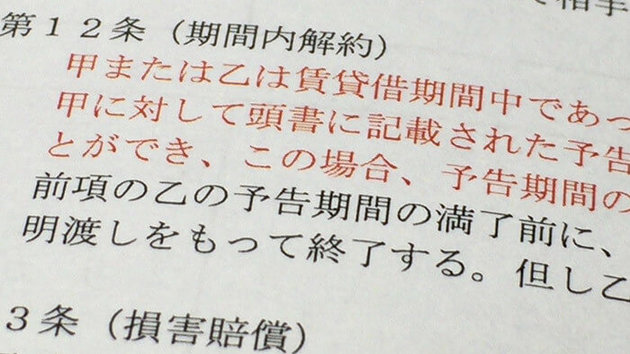 て相手
第１２条（期間内解約）
甲または乙は賃貸借期間中であっ
甲に対して頭書に記載された予告
とができ、この場合、予告期間の
前項の乙の予告期間の満了前に、
明渡しをもって終了する。但し乙
３条（損害賠償）